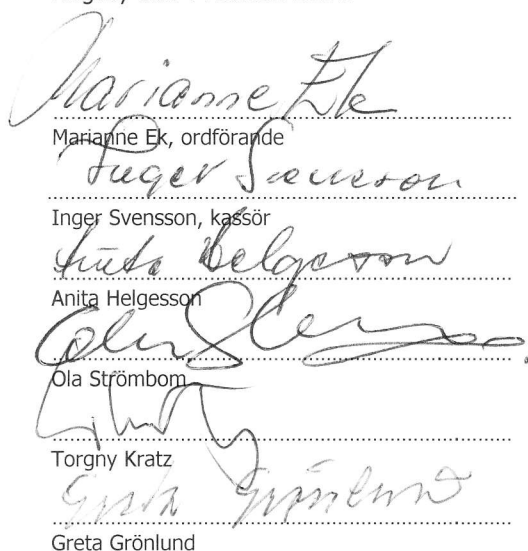 Marianne Ek
Marianne Ek, ordförande
Inger Svensson
Inger Svensson, kassör
Anita Helgesson
Anita Helgesson
Ola Strömbom
Torgny Kratz
Greta Grönlund
Greta Grönlund